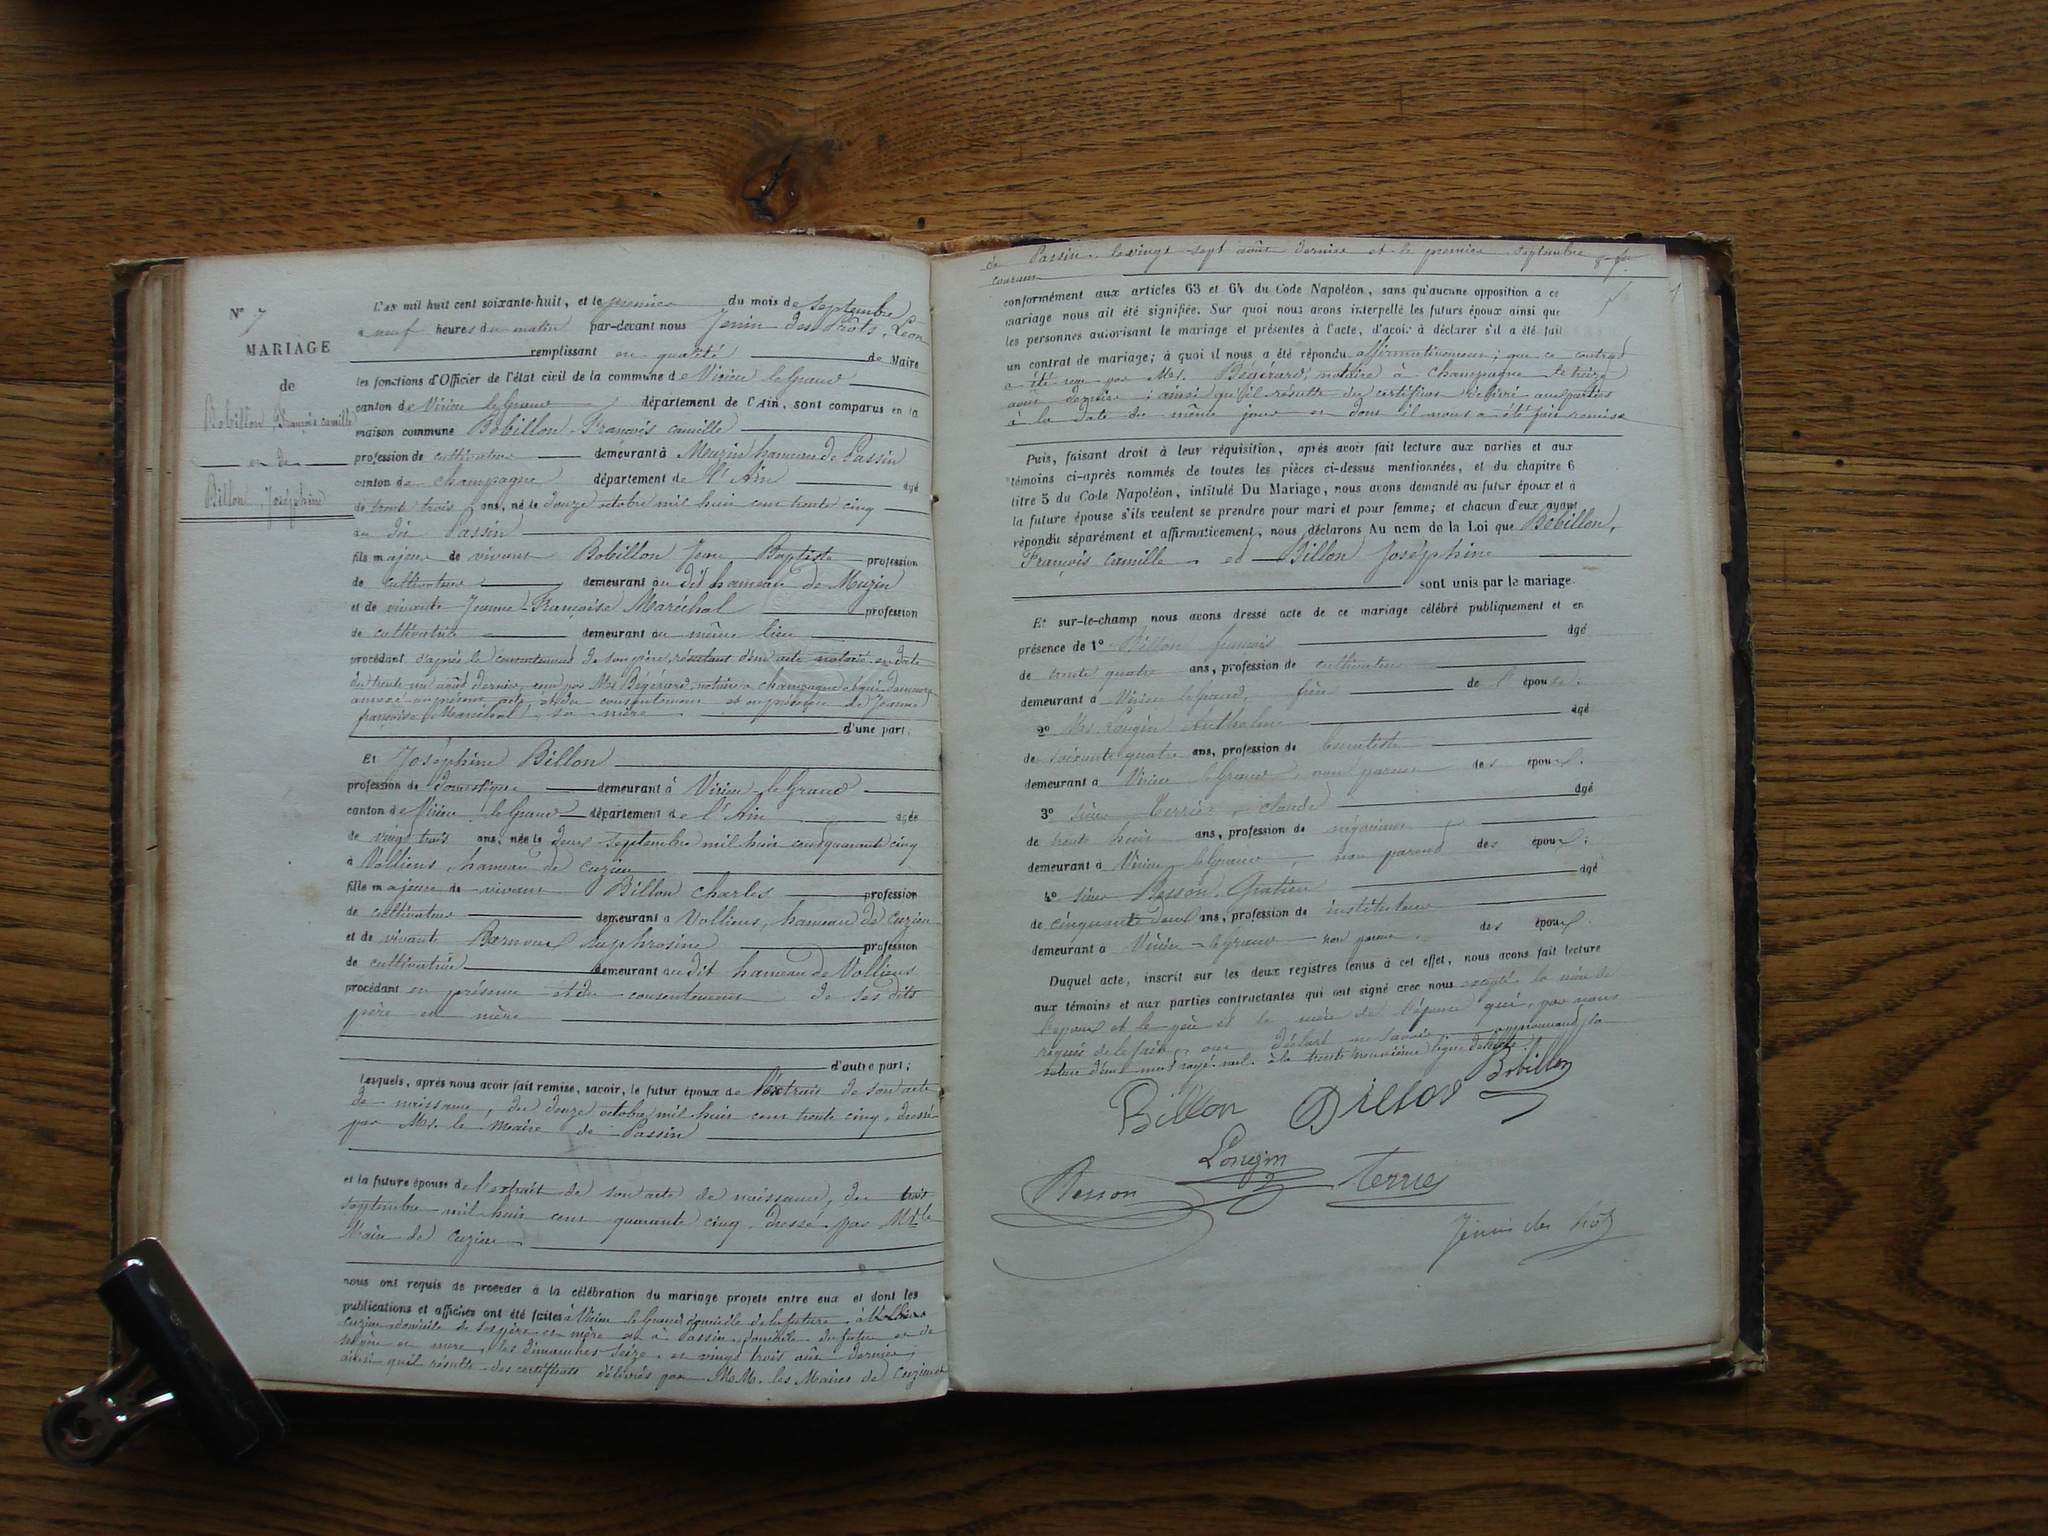 N° 7
MARIAGE
de
Bobillon François camille
et de
Billon Joséphine
L'an mil huit cent soixante-huit, et le premier du mois de septembre
a neuf heures du matin par-devant nous Jenin des Prôts, Léon
remplissant en qualité de Maire
les fonctions d'Officier de l'état civil de la commune de Virieu le Grand
canton de Virieu le Grand département de l'Ain, sont comparus en la
maison commune Bobillon François camille
profession de cultivateur demeurant à Muzin hameau de Passin
canton de champagne département de l'Ain âgé
de trente trois ans, né le douze octobre mil huit cent trente cinq
au dit Passin
fils majeur de vivant Bobillon Jean Baptiste profession
de cultivateur demeurant au dit hameau de Muzin
et de vivante Jeanne Françoise Maréchal profession
de cultivatrice demeurant au même lieu
procédant d'après le consentement de son père, résultant d'un acte notarié en date
du trente un août dernier, reçu par Me Bégérard, notaire à champagne et qui demeure
annexé au présent acte, et du consentement et en présence de Jeanne
françoise Maréchal, sa mère
d'une part;
Et Joséphine Billon
profession de domestique demeurant à Virieu le Grand
canton de Virieu le Grand département de l'Ain âgée
de vingt trois ans, née le deux septembre mil huit cent quarante cinq
à Volliens, hameau de cuzieu
fille majeure de vivant Billon charles profession
de cultivateur demeurant à Volliens, hameau de Cuzieu
et de vivante suphrosine profession
de cultivatrice demeurant au dit hameau de Volliens
procédant en présence et du consentement de ses dits
père et mère
d'autre part;
Lesquels, après nous avoir fait remise, savoir, le futur époux de l'extrait de son acte
de naissance, du douze octobre mil huit cent trente cinq, dressé
par Mr. le Maire de Passin
et la future épouse de l'extrait de son acte de naissance, du trois
septembre mil huit cent quarante cinq, dressé par Mr le
Maire de Cuzieu
nous ont requis de procéder à la célébration du mariage projeté entre eux et dont les
publications et affiches ont été faites à Virieu le Grand domicile de la future, à
Cuzieu domicile de ses père et mère et à Passin, domicile du futur et de
ses père et mère, les dimanches seize et vingt trois août dernier;
ainsi qu'il résulte des certificats délivrés par MM. les Maires de Cuzieu et
de Passin, le vingt sept août dernier et le premier septembre
courant
conformément aux articles 63 et 64 du Code Napoléon, sans qu'aucune opposition à ce
mariage nous ait été signifiée. Sur quoi nous avons interpellé les futurs époux ainsi que
les personnes autorisant le mariage et présentes à l'acte, d'avoir à déclarer s'il a été fait
un contrat de mariage; à quoi il nous a été répondu affirmativement; que ce contrat
a été reçu par Me. Bégérard, notaire à champagne le treize
août dernier; ainsi qu'il résulte du certificat délivré aux parties
à la date du même jour et dont il nous a été fait remise
Puis, faisant droit à leur réquisition, après avoir fait lecture aux parties et aux
témoins ci-après nommés de toutes les pièces ci-dessus mentionnées, et du chapitre 6
titre 5 du Code Napoléon, intitulé Du Mariage, nous avons demandé au futur époux et à
la future épouse s'ils veulent se prendre pour mari et pour femme; et chacun d'eux ayant
répondu séparément et affirmativement, nous déclarons Au nom de la Loi que Bobillon,
François Camille et Billon Joséphine
sont unis par le mariage.
Et sur-le-champ nous avons dressé acte de ce mariage célébré publiquement et en
présence de 1° Billon françois âgé
de trente quatre ans, profession de cultivateur
demeurant à Virieu le Grand, frère de l'épouse.
2° Mr. Longin Anthelme âgé
de soixante quatre ans, profession de
demeurant à Virieu le Grand, non parent des époux.
3° sieur Terrier, claude âgé
de trente huit ans, profession de négociant
demeurant à Virieu le Grand, non parent des époux;
4° sieur Besson, Gratien âgé
de cinquante deux ans, profession de instituteur
demeurant à Virieu le Grand non parent des époux.
Duquel acte, inscrit sur les deux registres tenus à cet effet, nous avons fait lecture
aux témoins et aux parties contractantes qui ont signé avec nous excepté la mère de
l'époux et le père et la mère de l'épouse qui, par nous
requis de le faire, ont déclaré ne savoir approuvant la
rature d'un mot rayé nul à la trente neuvième ligne
Billon Billon Bobillon
Longin
Besson Terrier
Jenin des Prôts